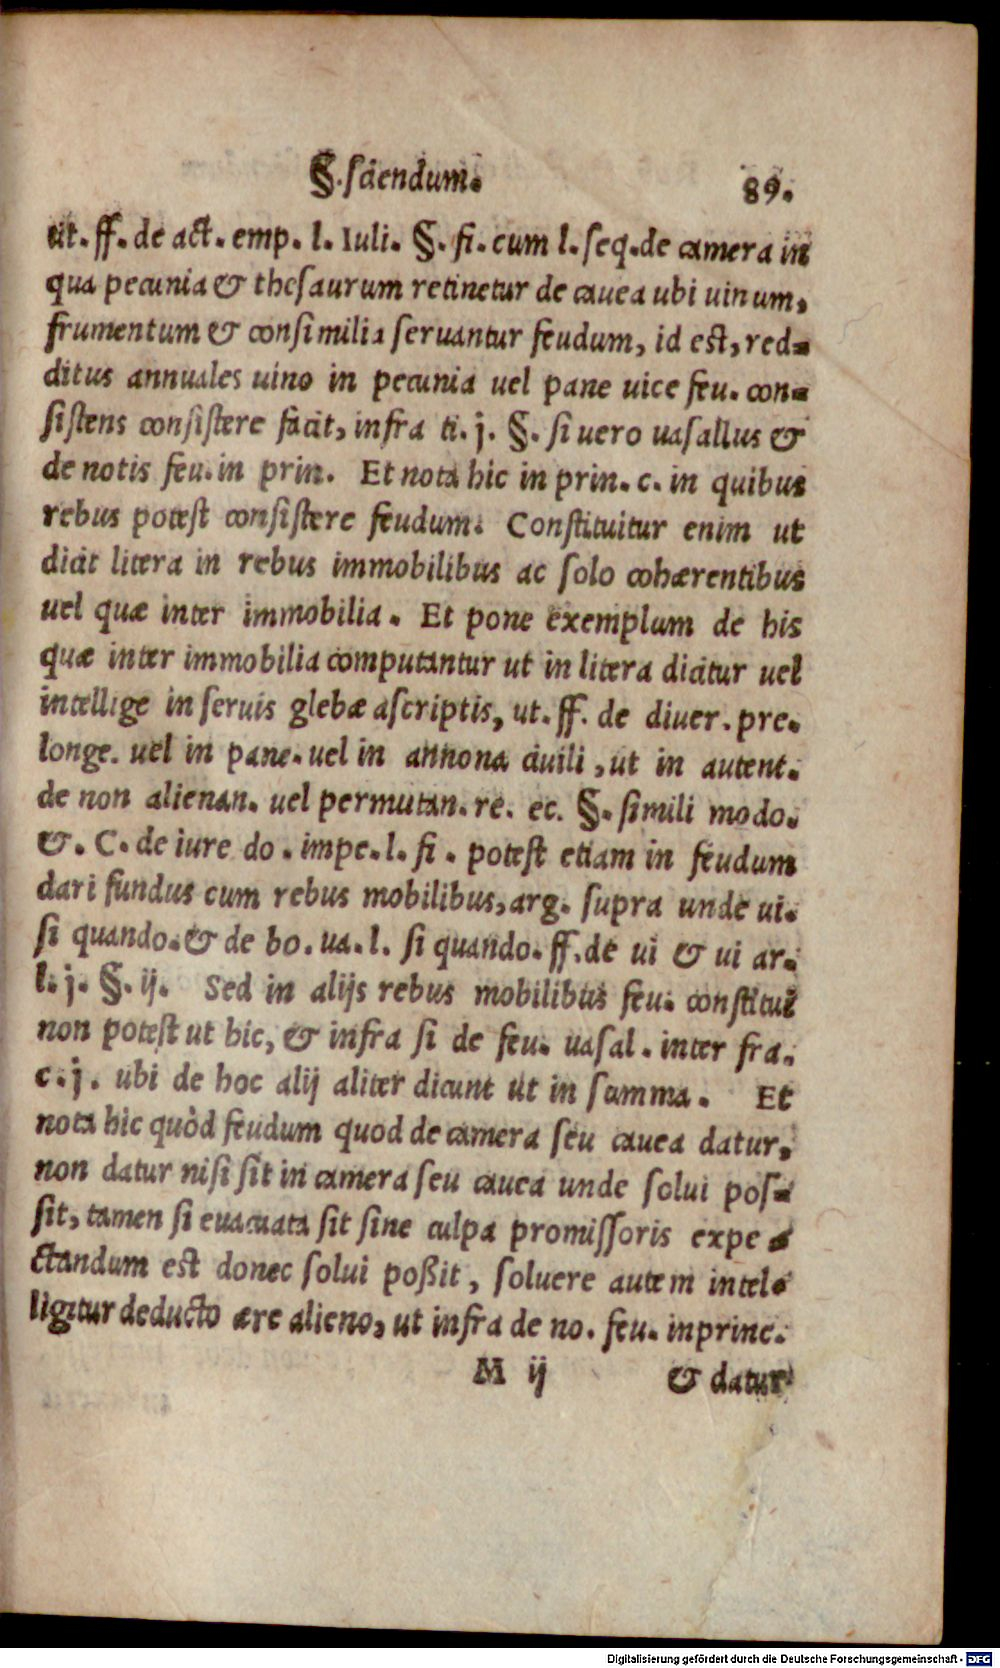 §. sciendum. 89.
tit. ff. de act. emp. l. Iuli. §. fi. cum l. seq. de camera in
qua pecunia & thesaurum retinetur de cauea ubi uinum,
frumentum & consimilia seruantur feudum, id est, red-
ditus annuales uino in pecunia uel pane uice feu. con-
sistens consistere facit, infra ti. j. §. si uero uasallus &
de notis feu. in prin. Et nota hic in prin. c. in quibus
rebus potest consistere feudum. Constituitur enim ut
dicit litera in rebus immobilibus ac solo cohærentibus
uel quæ inter immobilia. Et pone exemplum de his
quæ inter immobilia computantur ut in litera dicitur uel
intellige in seruis glebæ ascriptis, ut. ff. de diuer. pre.
longe. uel in pane. uel in annona ciuili, ut in autent.
de non alienan. uel permutan. re. ec. §. simili modo.
&. C. de iure do. impe. l. fi. potest etiam in feudum
dari fundus cum rebus mobilibus, arg. supra unde ui.
si quando. & de bo. ua. l. si quando. ff. de ui & ui ar.
l. j. §. ij. Sed in alijs rebus mobilibus feu. constitui
non potest ut hic, & infra si de feu. uasal. inter fra.
c. j. ubi de hoc alij aliter dicunt ut in summa. Et
nota hic quòd feudum quod de camera seu cauea datur,
non datur nisi sit in camera seu cauea unde solui pos-
sit, tamen si euacuata sit sine culpa promissoris expe-
ctandum est donec solui poßit, soluere autem intel-
ligitur deducto ære alieno, ut infra de no. feu. in princ.
M ij & datur
Digitalisierung gefördert durch die Deutsche Forschungsgemeinschaft - DFG